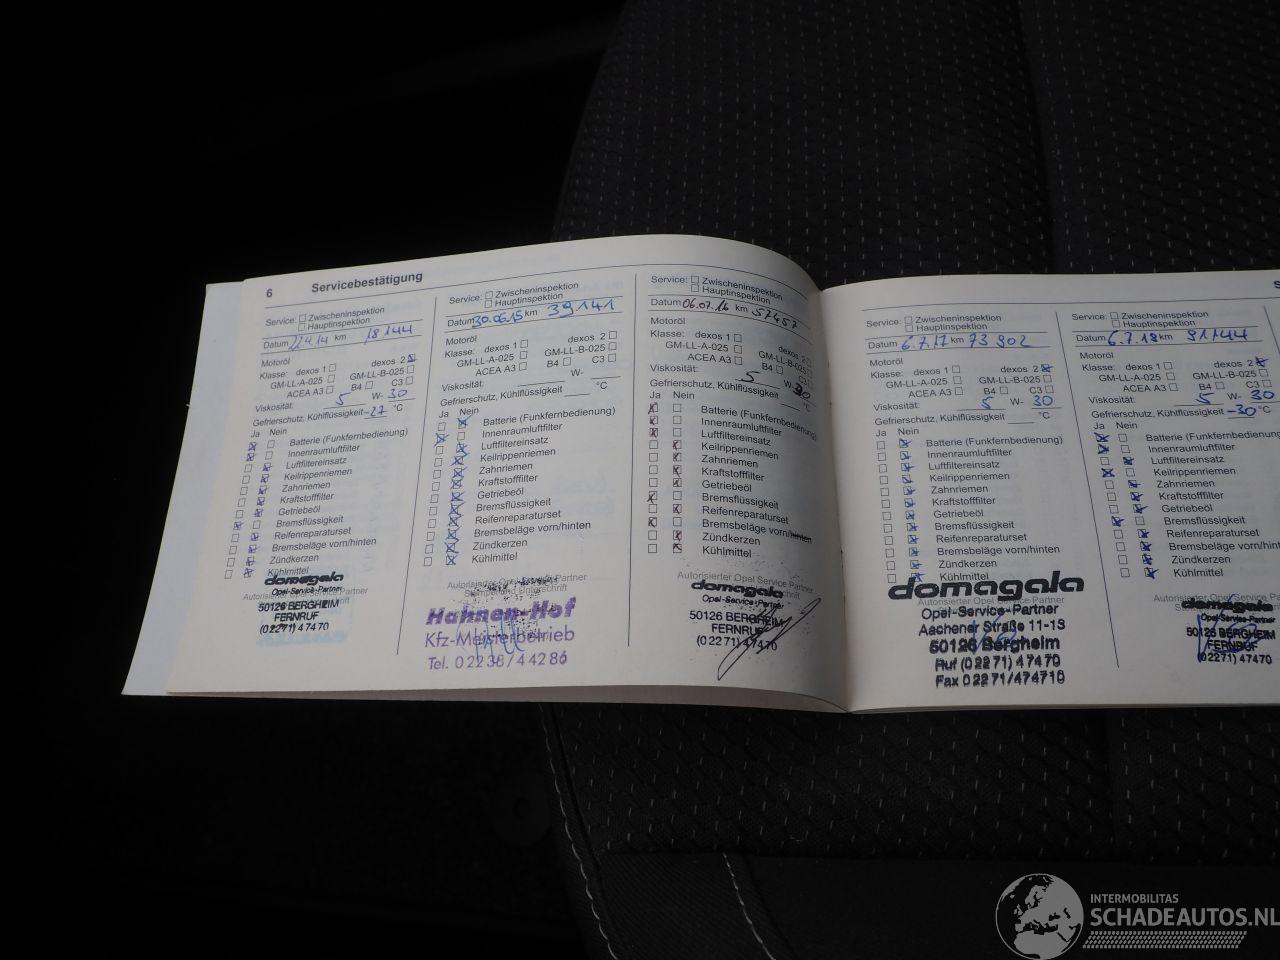 6 Servicebestätigung
Service: Zwischeninspektion
Hauptinspektion
Datum km 18144
Motoröl
Klasse: dexos 1 dexos 2
GM-LL-A-025 GM-LL-B-025
ACEA A3 B4 C3
Viskosität: 5 W- 30
Gefrierschutz, Kühlflüssigkeit -27 °C
Ja Nein
Batterie (Funkfernbedienung)
Innenraumluftfilter
Luftfiltereinsatz
Keilrippenriemen
Zahnriemen
Kraftstofffilter
Getriebeöl
Bremsflüssigkeit
Reifenreparaturset
Bremsbeläge vorn/hinten
Zündkerzen
Kühlmittel
domagala
Opel-Service-Partner
50126 BERGHEIM
FERNRUF
(02271) 47470
Service: Zwischeninspektion
Hauptinspektion
Datum 30.06.15 km 39141
Motoröl
Klasse: dexos 1 dexos 2
GM-LL-A-025 GM-LL-B-025
ACEA A3 B4 C3
Viskosität: W-
Gefrierschutz, Kühlflüssigkeit °C
Ja Nein
Batterie (Funkfernbedienung)
Innenraumluftfilter
Luftfiltereinsatz
Keilrippenriemen
Zahnriemen
Kraftstofffilter
Getriebeöl
Bremsflüssigkeit
Reifenreparaturset
Bremsbeläge vorn/hinten
Zündkerzen
Kühlmittel
Autorisierter Opel Service Partner
Stempel und Unterschrift
Hahnen-Hof
Kfz-Meisterbetrieb
Tel. 02238/44286
Service: Zwischeninspektion
Hauptinspektion
Datum 06.07.16 km 57457
Motoröl
Klasse: dexos 1 dexos 2
GM-LL-A-025 GM-LL-B-025
ACEA A3 B4 C3
Viskosität: 5 W- 30
Gefrierschutz, Kühlflüssigkeit °C
Ja Nein
Batterie (Funkfernbedienung)
Innenraumluftfilter
Luftfiltereinsatz
Keilrippenriemen
Zahnriemen
Kraftstofffilter
Getriebeöl
Bremsflüssigkeit
Reifenreparaturset
Bremsbeläge vorn/hinten
Zündkerzen
Kühlmittel
Autorisierter Opel Service Partner
domagala
Opel-Service-Partner
50126 BERGHEIM
FERNRUF
(02271) 47470
Service: Zwischeninspektion
Hauptinspektion
Datum 6.7.17 km 73902
Motoröl
Klasse: dexos 1 dexos 2
GM-LL-A-025 GM-LL-B-025
ACEA A3 B4 C3
Viskosität: 5 W- 30
Gefrierschutz, Kühlflüssigkeit °C
Ja Nein
Batterie (Funkfernbedienung)
Innenraumluftfilter
Luftfiltereinsatz
Keilrippenriemen
Zahnriemen
Kraftstofffilter
Getriebeöl
Bremsflüssigkeit
Reifenreparaturset
Bremsbeläge vorn/hinten
Zündkerzen
Kühlmittel
domagala
Opel-Service-Partner
Aachener Straße 11-13
50126 Bergheim
Ruf (02271) 47470
Fax 02271/474710
Service: Zwischeninspektion
Hauptinspektion
Datum 6.7.18 km 91744
Motoröl
Klasse: dexos 1 dexos 2
GM-LL-A-025 GM-LL-B-025
ACEA A3 B4 C3
Viskosität: 5 W- 30
Gefrierschutz, Kühlflüssigkeit -30 °C
Ja Nein
Batterie (Funkfernbedienung
Innenraumluftfilter
Luftfiltereinsatz
Keilrippenriemen
Zahnriemen
Kraftstofffilter
Getriebeöl
Bremsflüssigkeit
Reifenreparaturset
Bremsbeläge vorn/hinten
Zündkerzen
Kühlmittel
domagala
Opel-Service-Partner
50126 BERGHEIM
FERNRUF
(02271) 47470
INTERMOBILITAS
SCHADEAUTOS.NL